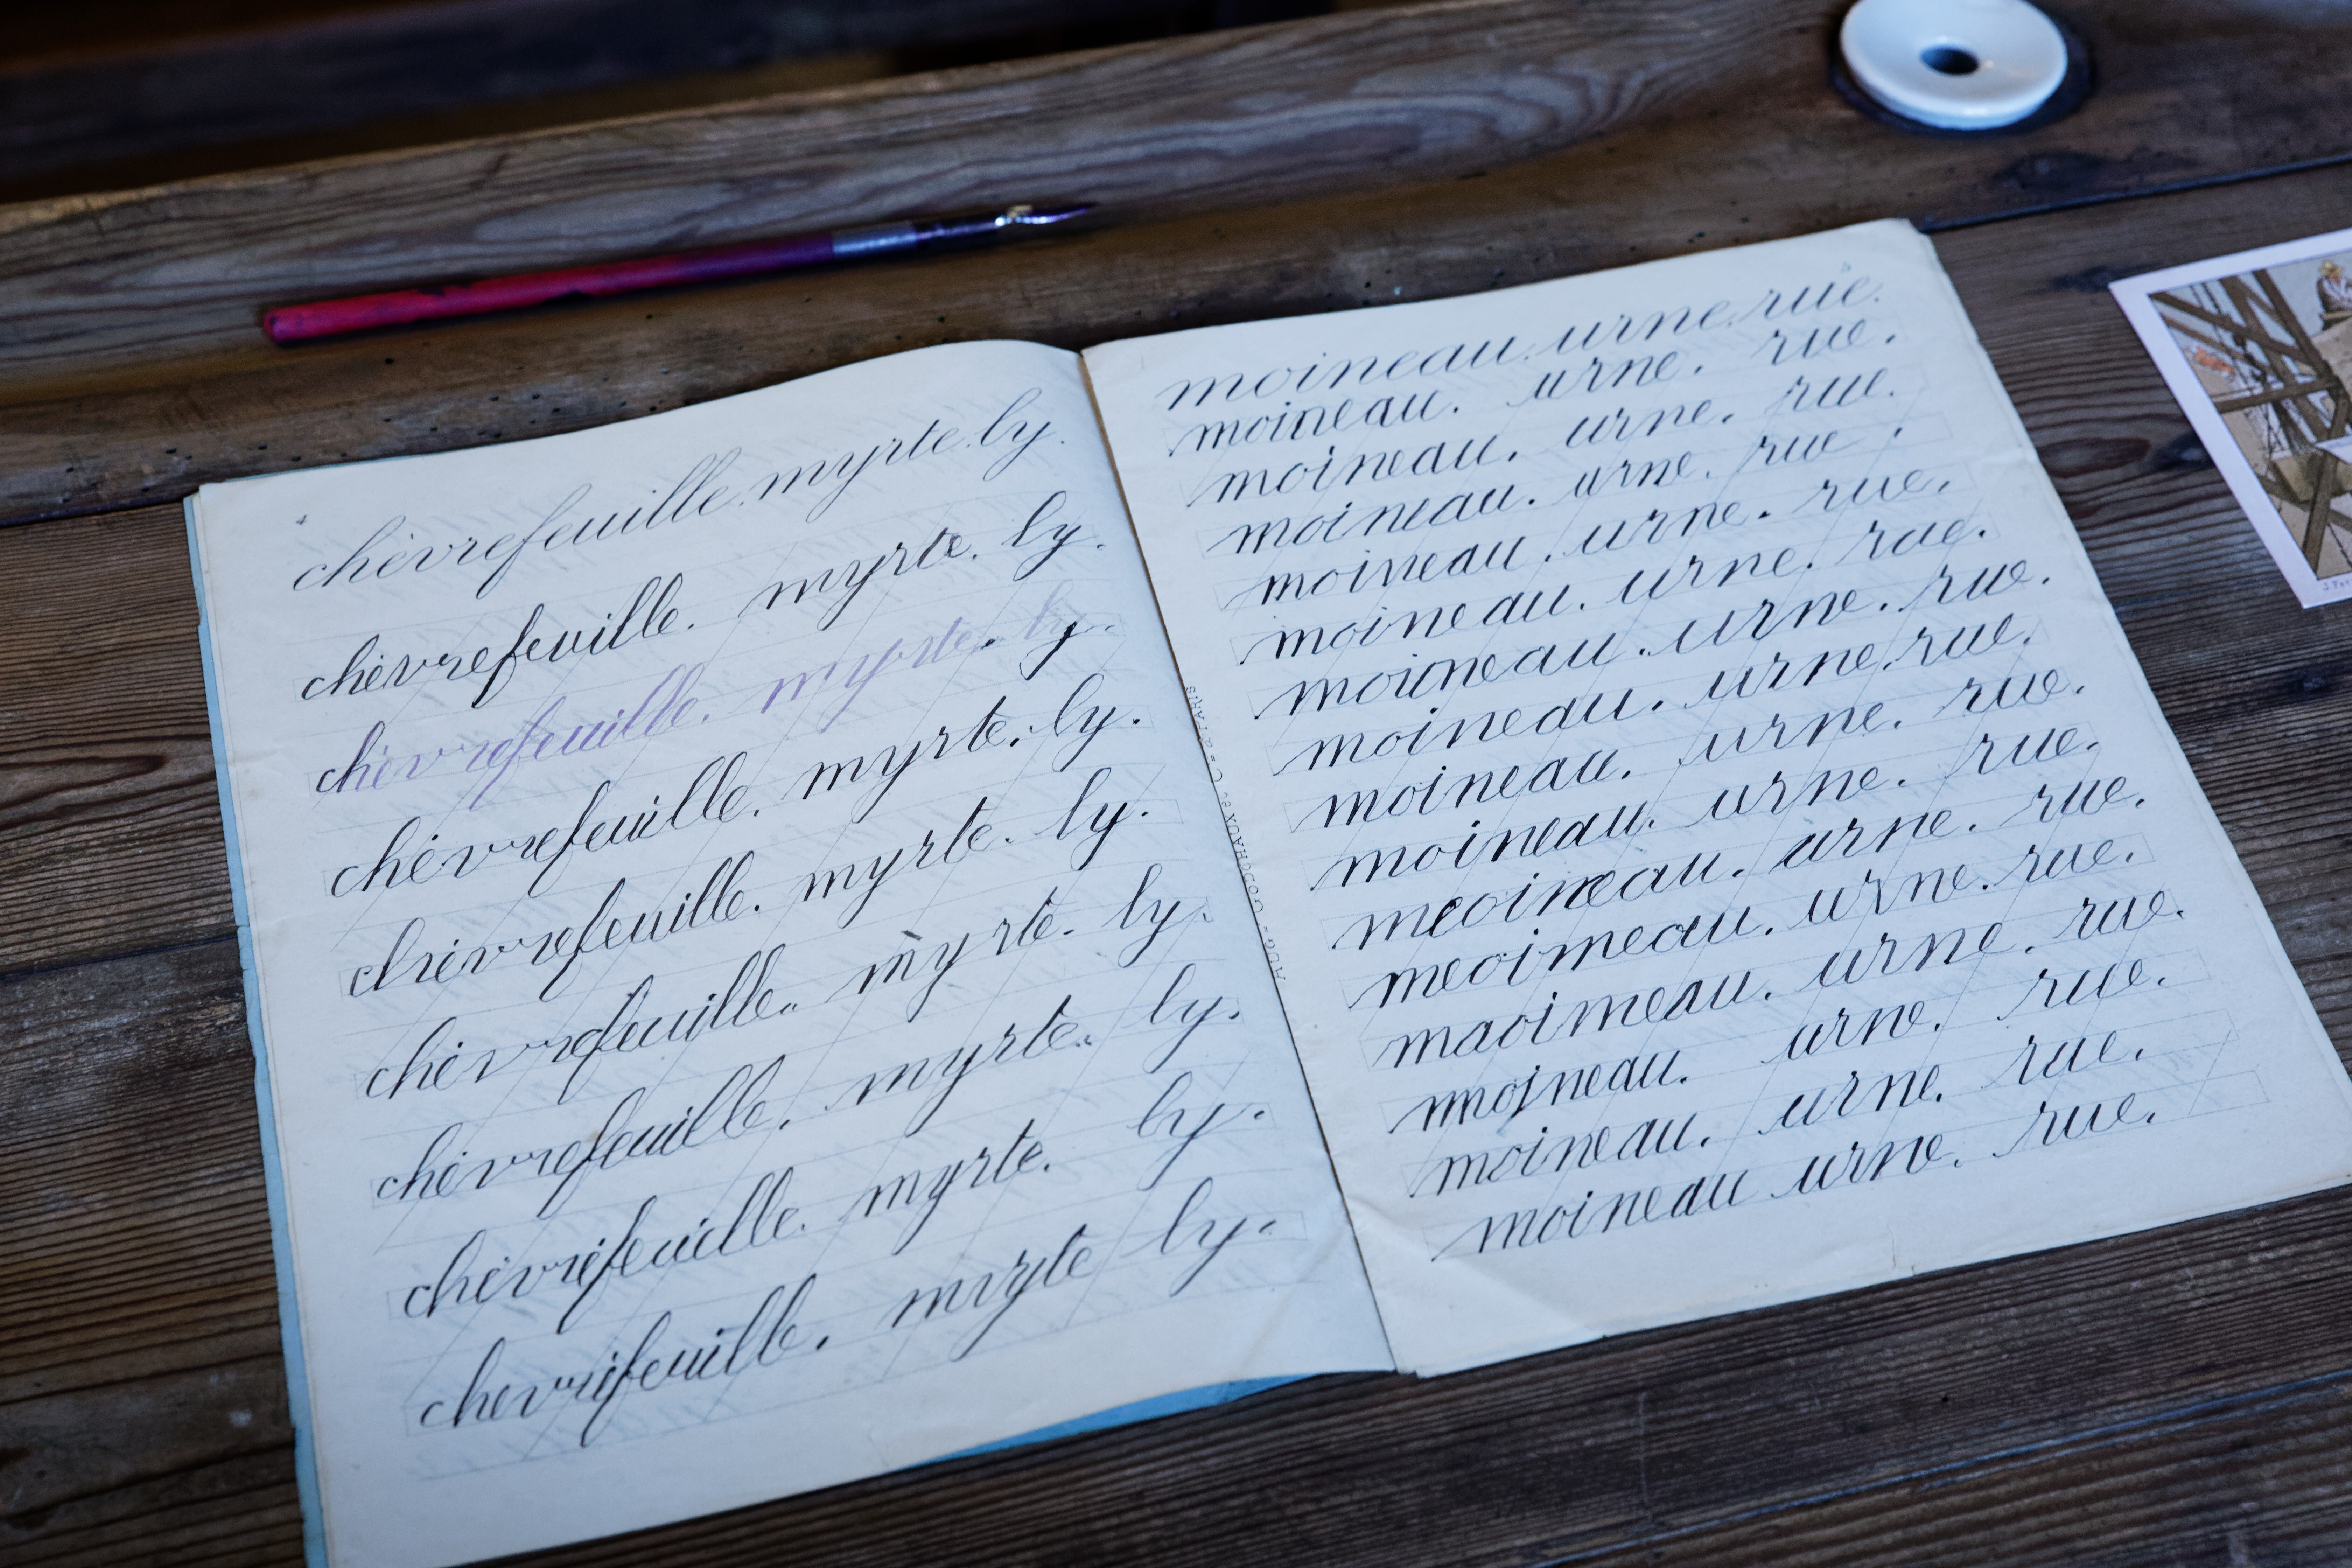 chèvrefeuille. myrte. ly.
chèvrefeuille. myrte. ly.
chèvrefeuille. myrte. ly.
chèvrefeuille. myrte. ly.
chèvrefeuille. myrte. ly.
chèvrefeuille. myrte. ly.
chèvrefeuille. myrte. ly.
chèvrefeuille. myrte. ly.
chevrefeuille. myrte ly.
moineau. urne. rue.
moineau. urne. rue.
moineau. urne. rue.
moineau. urne. rue.
moineau. urne. rue.
moineau. urne. rue.
moineau. urne. rue.
moineau. urne. rue.
moineau. urne. rue.
moineau. urne. rue.
meoineau. urne. rue.
meoimeau. urne. rue.
maoimeau. urne. rue.
moineau. urne. rue.
moineau. urne. rue.
moineau urne. rue.
AUG. GODCHAUX & Cie PARIS